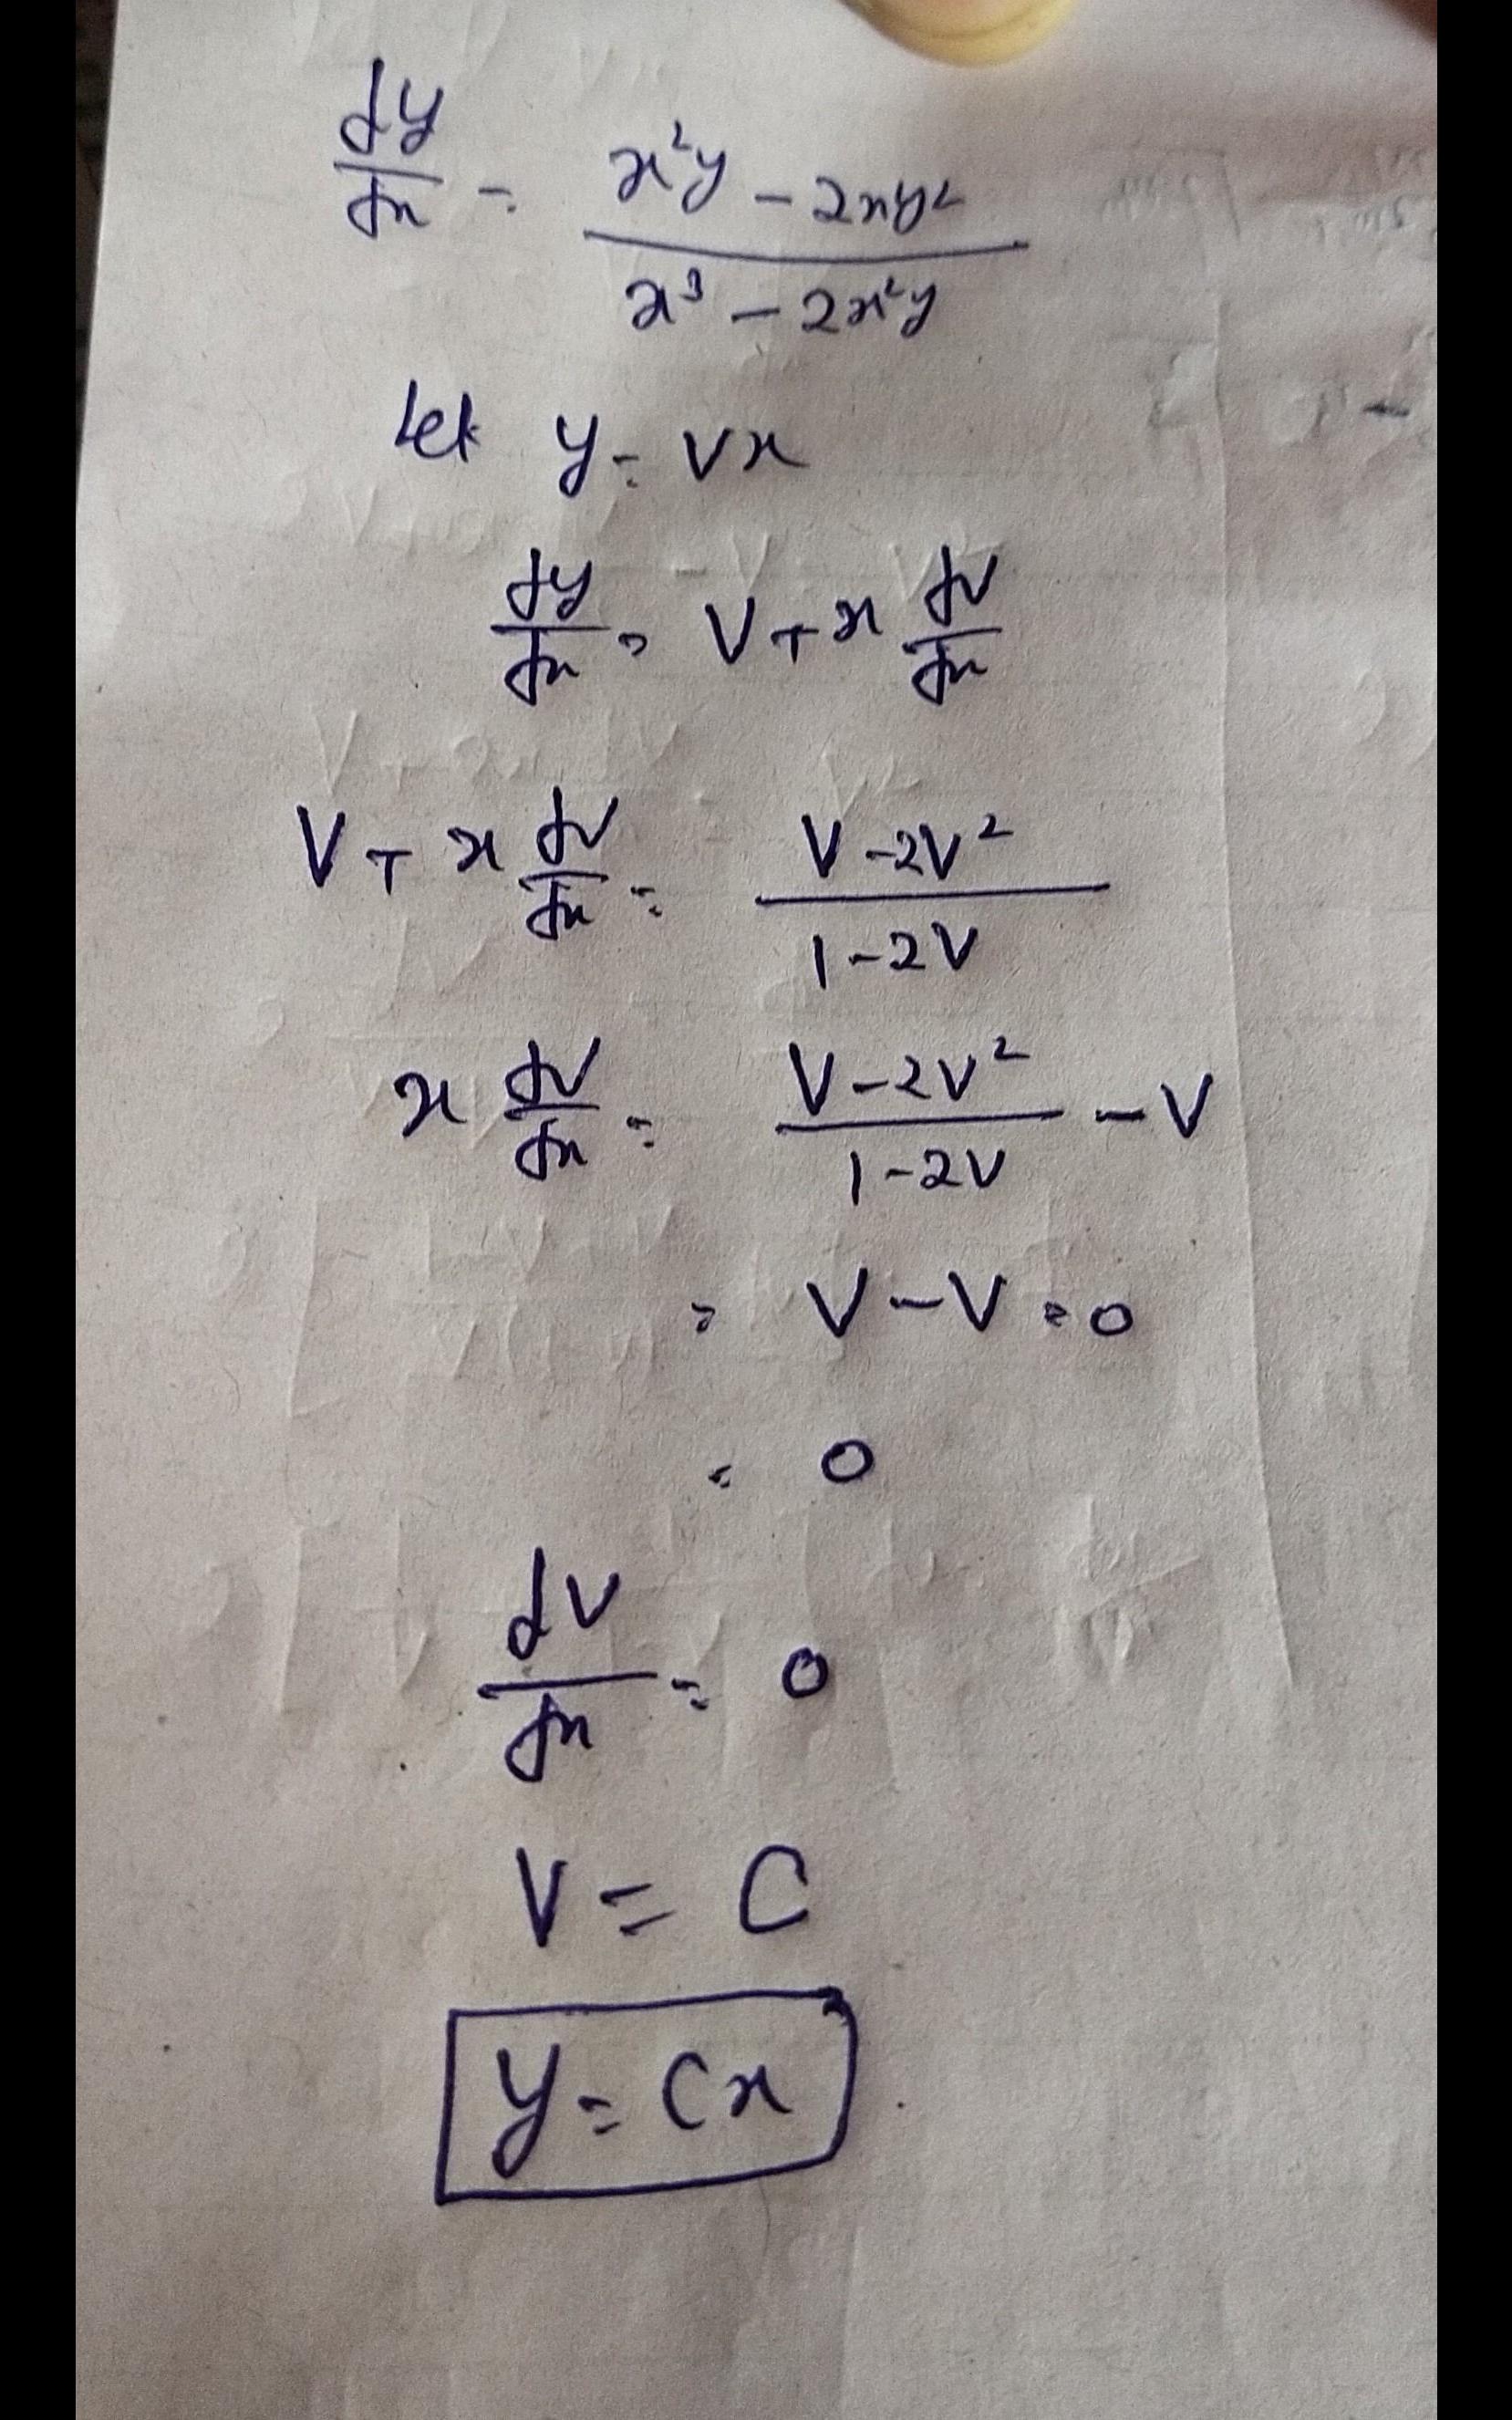 dy/dx = (x²y - 2xy²)/(x³ - 2x²y)
let y = vx
dy/dx = V + x dV/dx
V + x dV/dx = (V - 2V²)/(1 - 2V)
x dV/dx = (V - 2V²)/(1 - 2V) - V
= V - V = 0
= 0
dV/dx = 0
V = C
y = cx